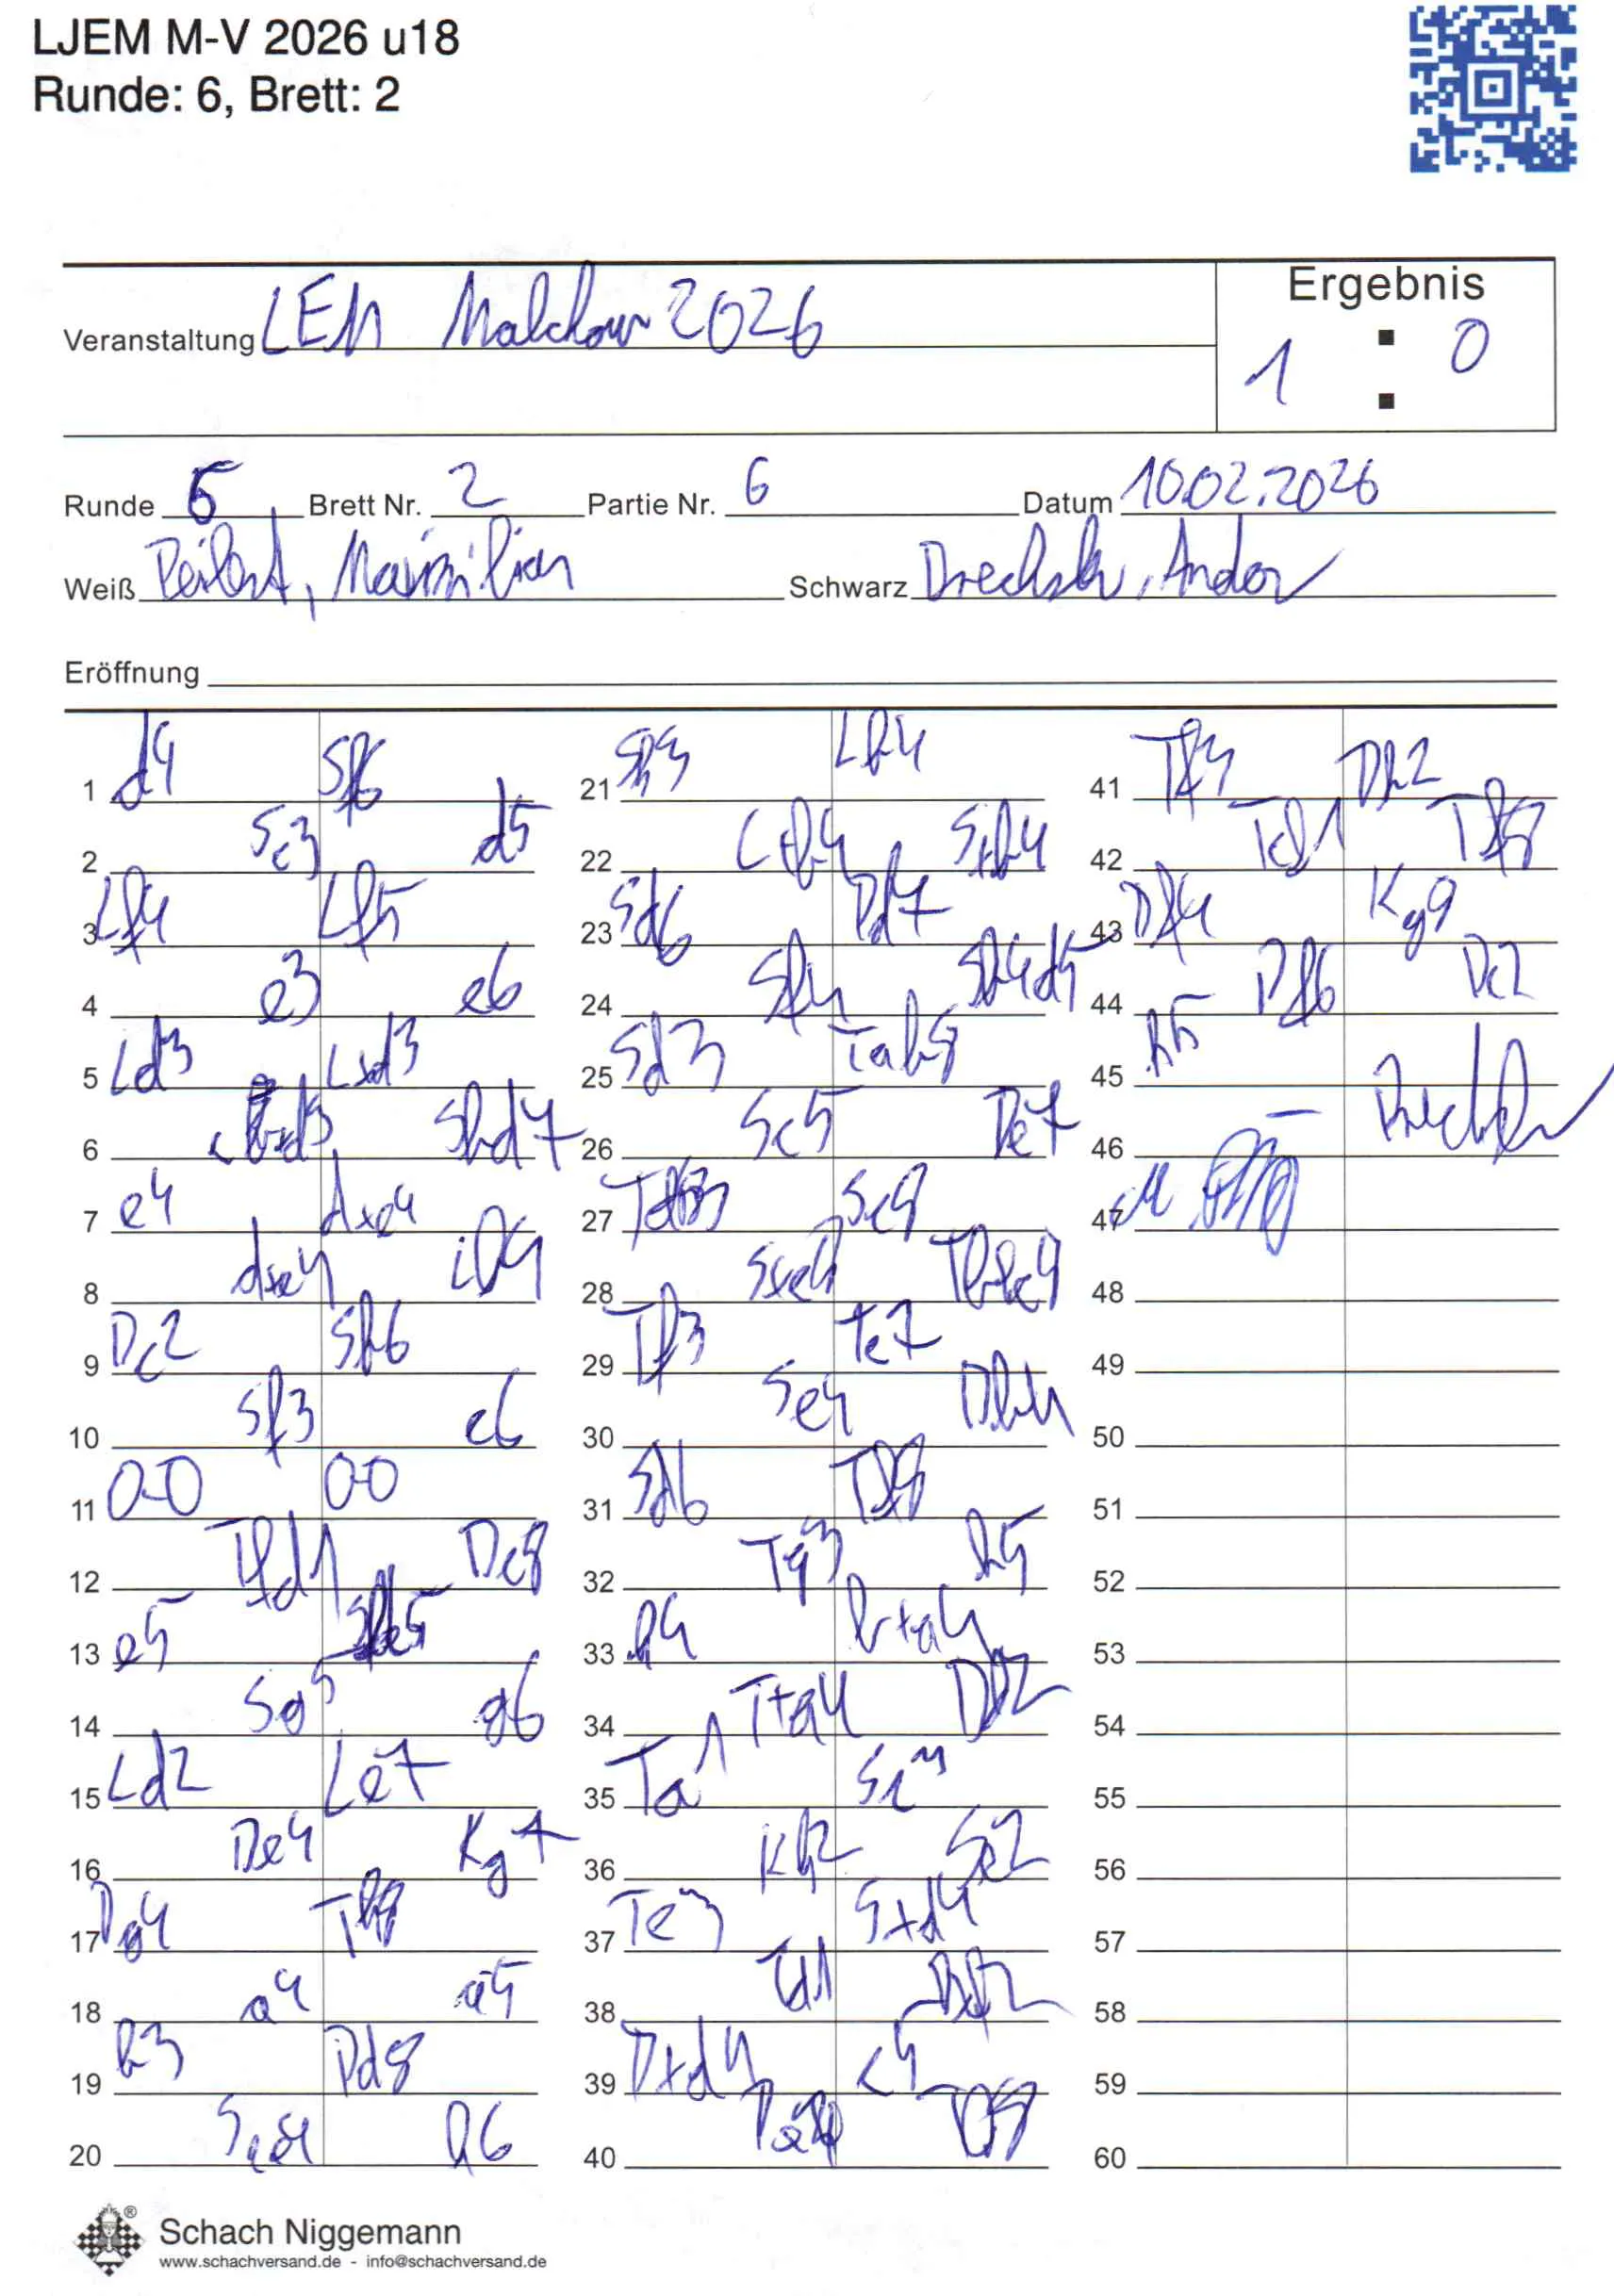 LJEM M-V 2026 u18
Runde: 6, Brett: 2
Ergebnis
Veranstaltung LEM Malchow 2026
1 : 0
Runde 6 Brett Nr. 2 Partie Nr. 6 Datum 10.02.2026
Weiß Maximilian Schwarz Drechsler, Andor
Eröffnung
1 d4 Sf6
2 Sc3 d5
3 Lf4 Lf5
4 e3 e6
5 Ld3 Lxd3
6 cxd3 Sbd7
7 e4 dxe4
8 dxe4
9 Dc2 Sb6
10 Sf3 c6
11 0-0 0-0
12 Tfd1 Dc8
13 e5
14 Sg5 g6
15 Ld2 Le7
16 De4 Kg7
17 Dg4 Th8
18 a4 a5
19 b3 Dd8
20 h6
21 Sh3 Lb4
22 Sxb4
23 Sd6 Dd7
24 Sf4 Sb4d5
25 Sd3 Tab8
26 Sc5 De7
27 Sc8
28 Sxc8
29 Tf3 Tc7
30 Se4 Dh4
31 Sd6 Td8
32 Tg3 h5
33 h4 bxa4
34 Txa4 Dd2
35 Ta1
36 Kh2 Se2
37 Te3 Sxd4
38 Td1
39 Dxd4 c4
40
41 Tf4 Dh2
42
43 Df4 Kg8
44 Df6 Dc2
45 h5
46 –
47
48
49
50
51
52
53
54
55
56
57
58
59
60
Schach Niggemann
www.schachversand.de - info@schachversand.de